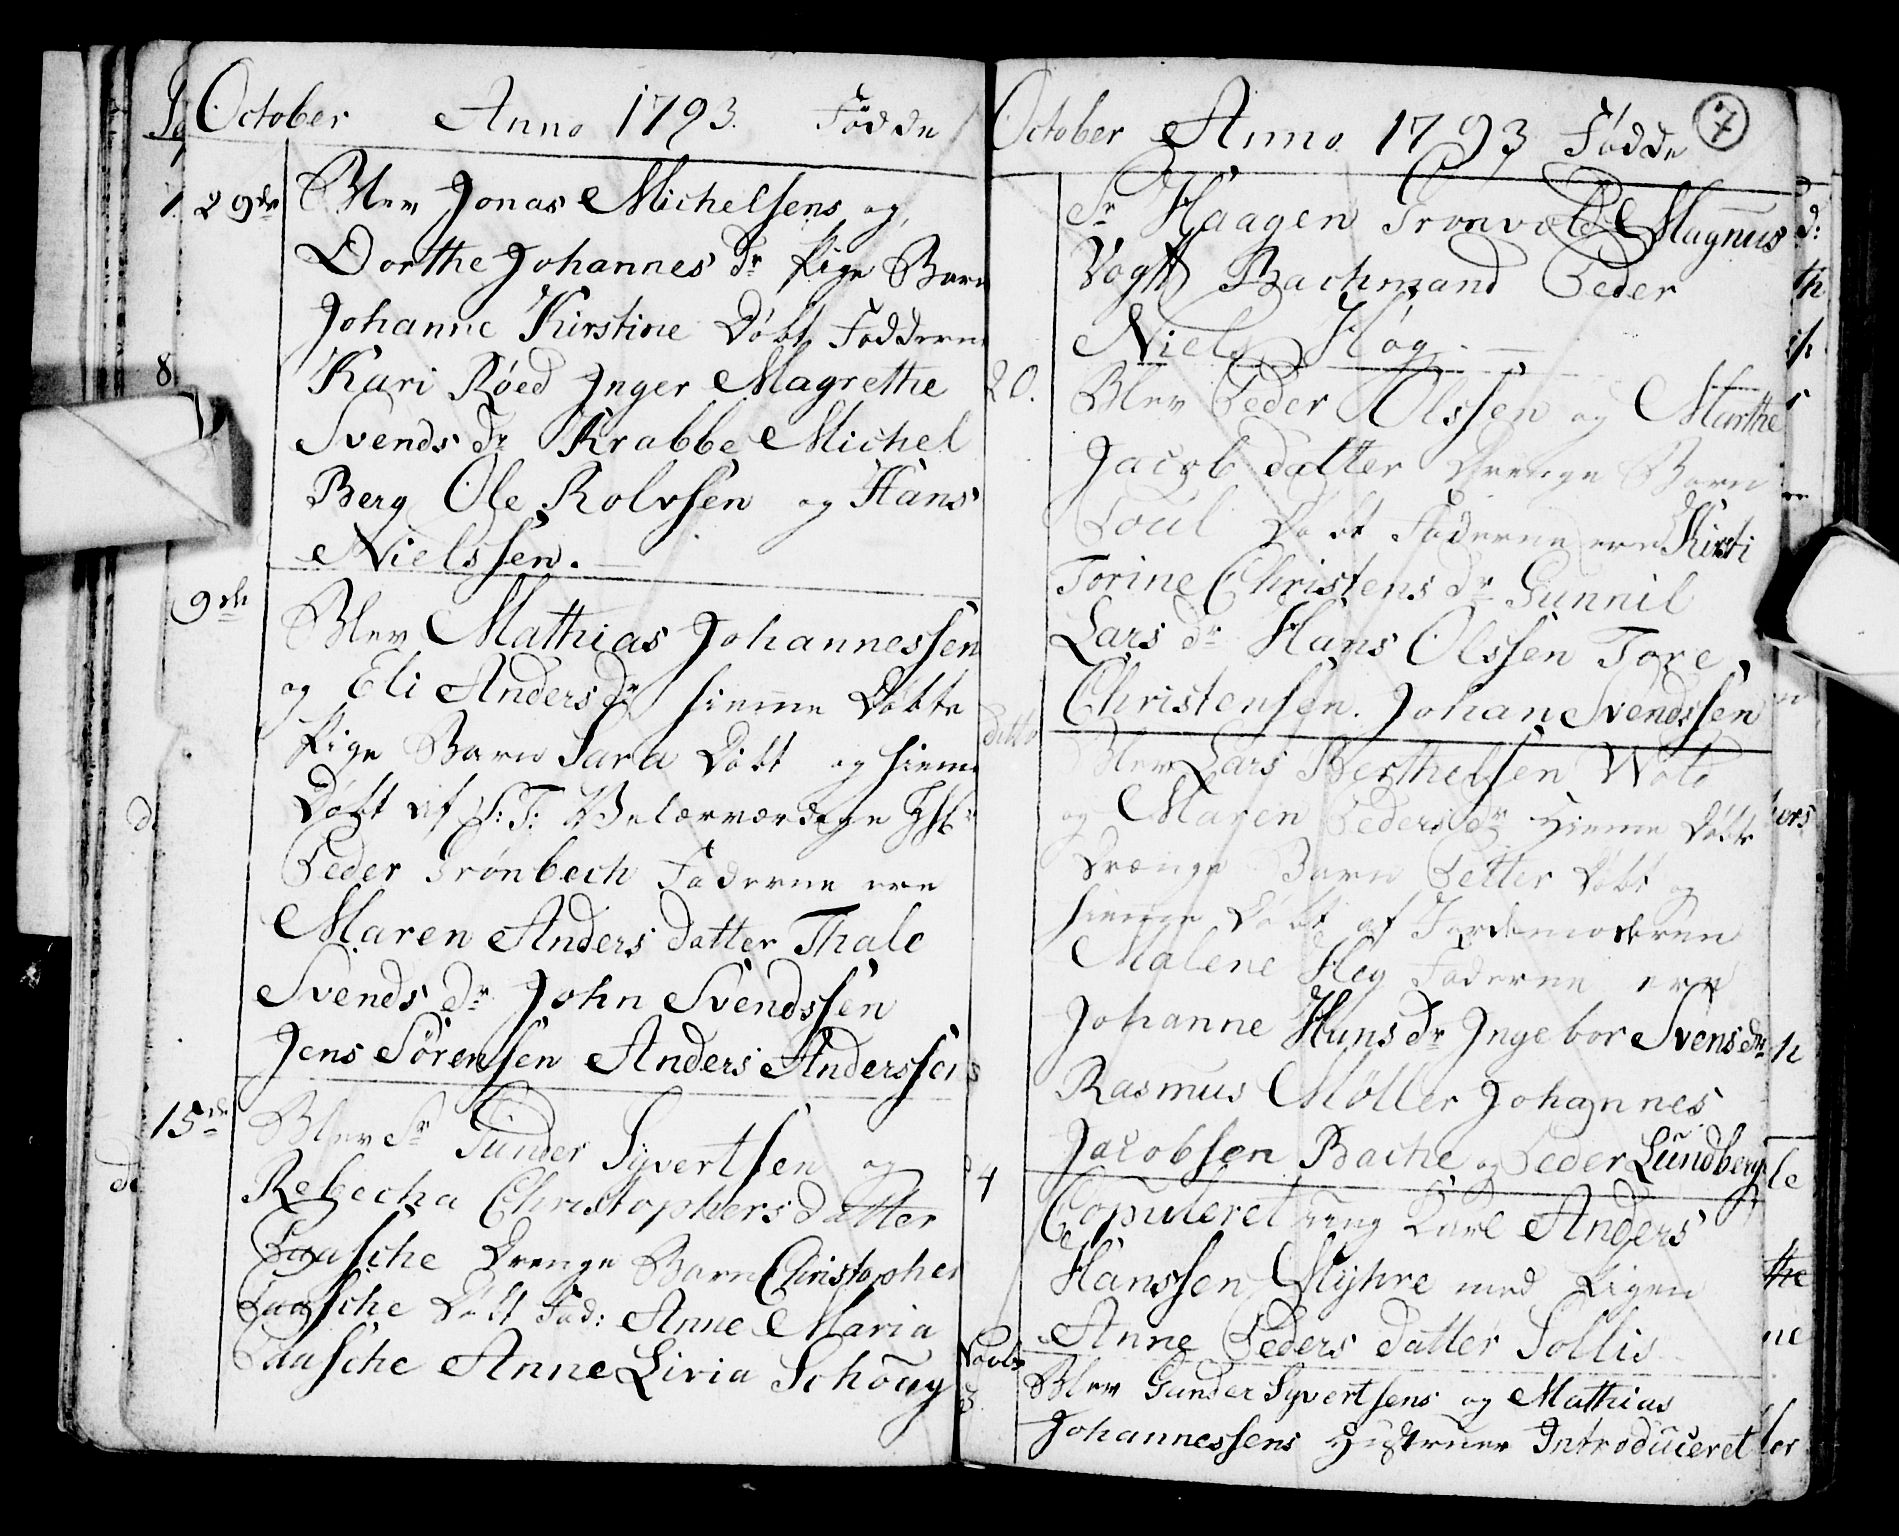 October Anno 1793. Fødde
29de Blev Jonas Michelsens og
Dorthe Johannes dr Pige Barn
Johanne Kirstine Døbt, Fadderne
Kari Røed Inger Magrethe
Svends dr Krabbe Michel
Berg Ole Rolvsen og Hans
Nielssen.
9de Blev Mathias Johannessen
og Eli Anders dr hiemme Døbte
Pige Barn Sara Døbt og hieme
Døbt af S: T: Velærværdige Hr
Peder Grønbech Faderne ere
Maren Anders datter Thale
Svends dr John Svendssen
Jens Sørensen Anders Anderssen
15de Blev Sr Günder Syvertsen og
Rebecha Christophers datter
Paasche Drenge Barn Christopher
Paasche Døbt Fad: Anne Maria
Paasche Anne Livia Schoug
October Anno 1793 Fødde 7
Sr Haagen Gronvold Magnus
Vogtt Bachmand Peder
Niels Høg.
20. Blev Peder Olssen og Marthe
Jacob datter Drenge Barn
Poul Døbt Faderne ere Kirsti
Torine Christens dr Gunnil
Lars dr Hans Olssen Tore
Christensen. Johan Svendssen
ditto Blev Lars Berthelsen Wold
og Maren Peders dr Hieme Døbte
Drænge Barn Petter Døbt og
hiemme Døbt af Jordemoderen
Malene Høg Faderne ere
Johanne Hans dr Ingebor Svens dr
Rasmus Møller Johannes
Jacobsen Bache og Peder Lundberg
24 Copuleret ung Karl Anders
Hanssen Myhre med Pigen
Anne Peders datter Sollis
Novbr
3. Blev Gunder Syvertsens og Mathias
Johannessens Hustruer Introduceret